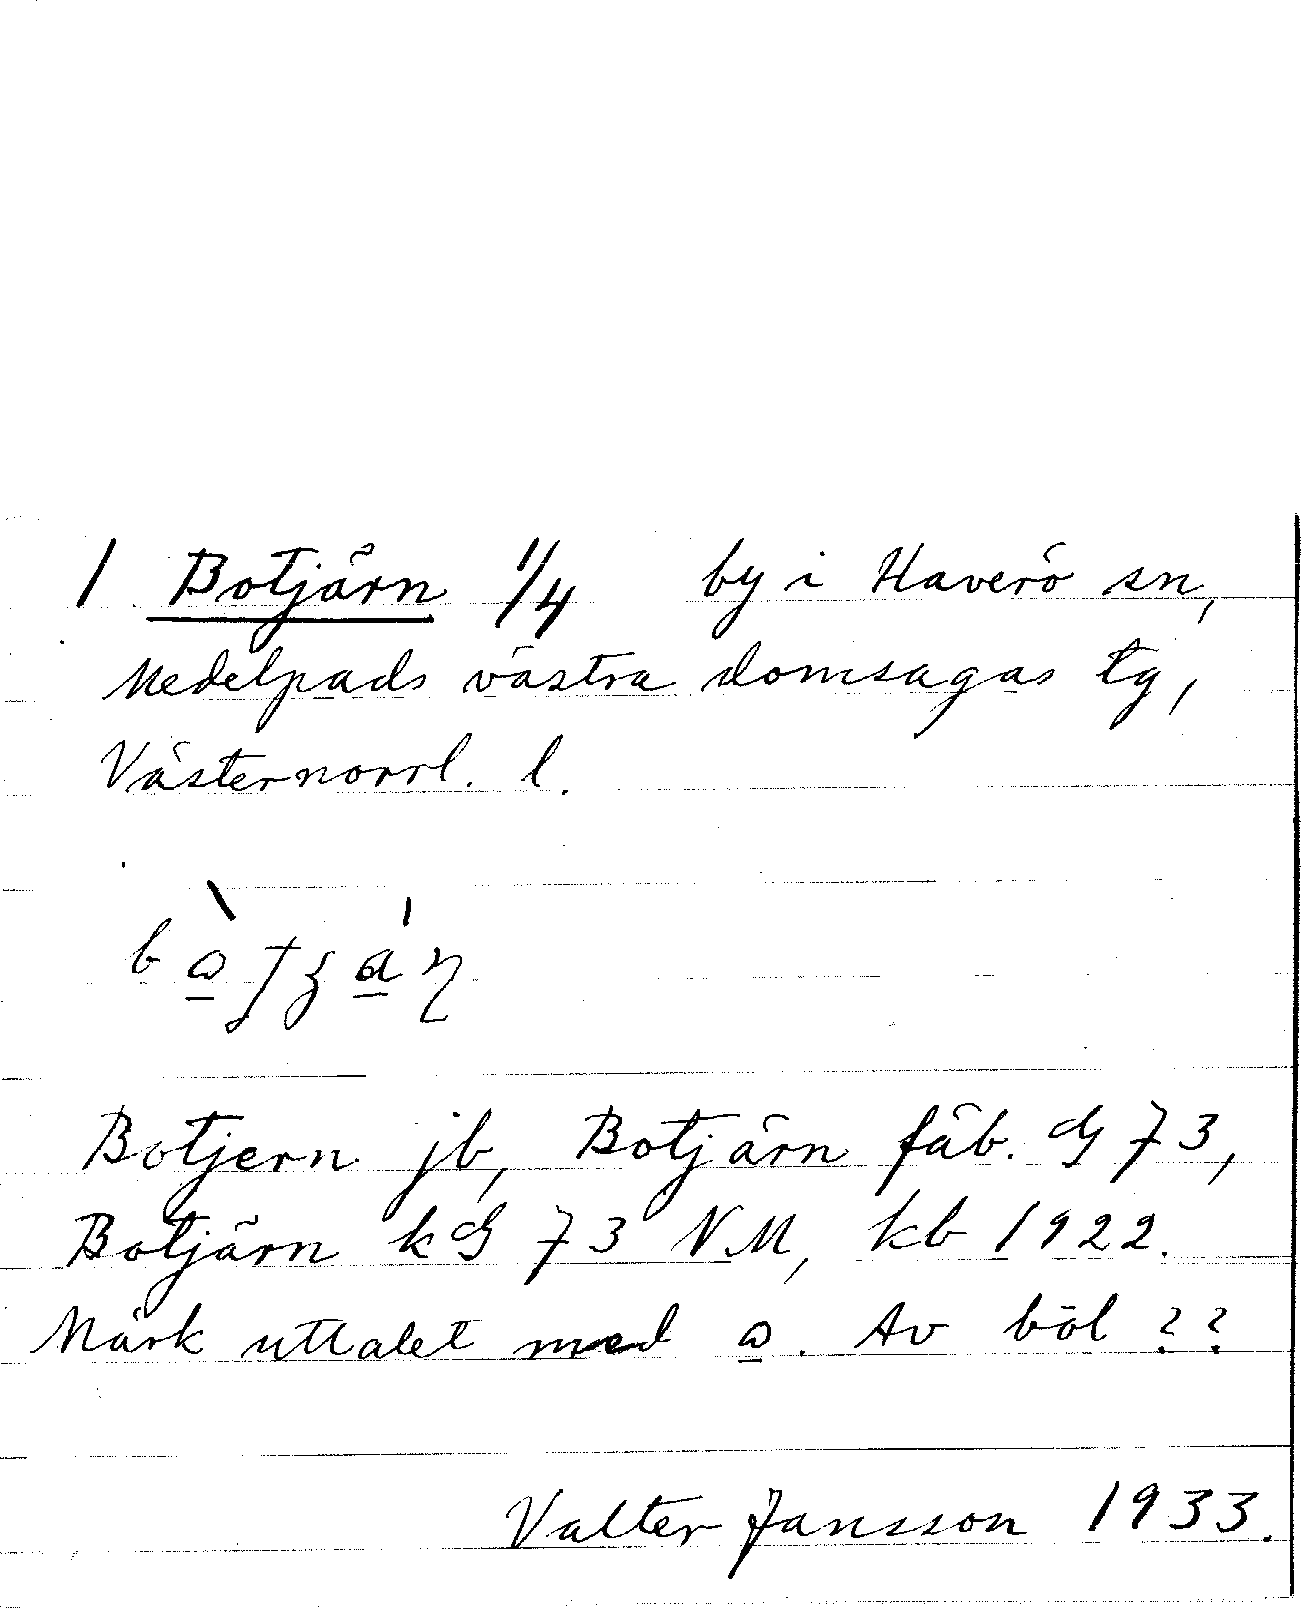 1 Botjärn 1/4 by i Haverö sn,
Medelpads västra domsagas tg,
Västernorrl. l.
Botjern jb, Botjärn fäb. G 73,
Botjärn kG 73 NM, kb 1922.
Märk uttalet med . Av böl ??
Valter Jansson 1933.